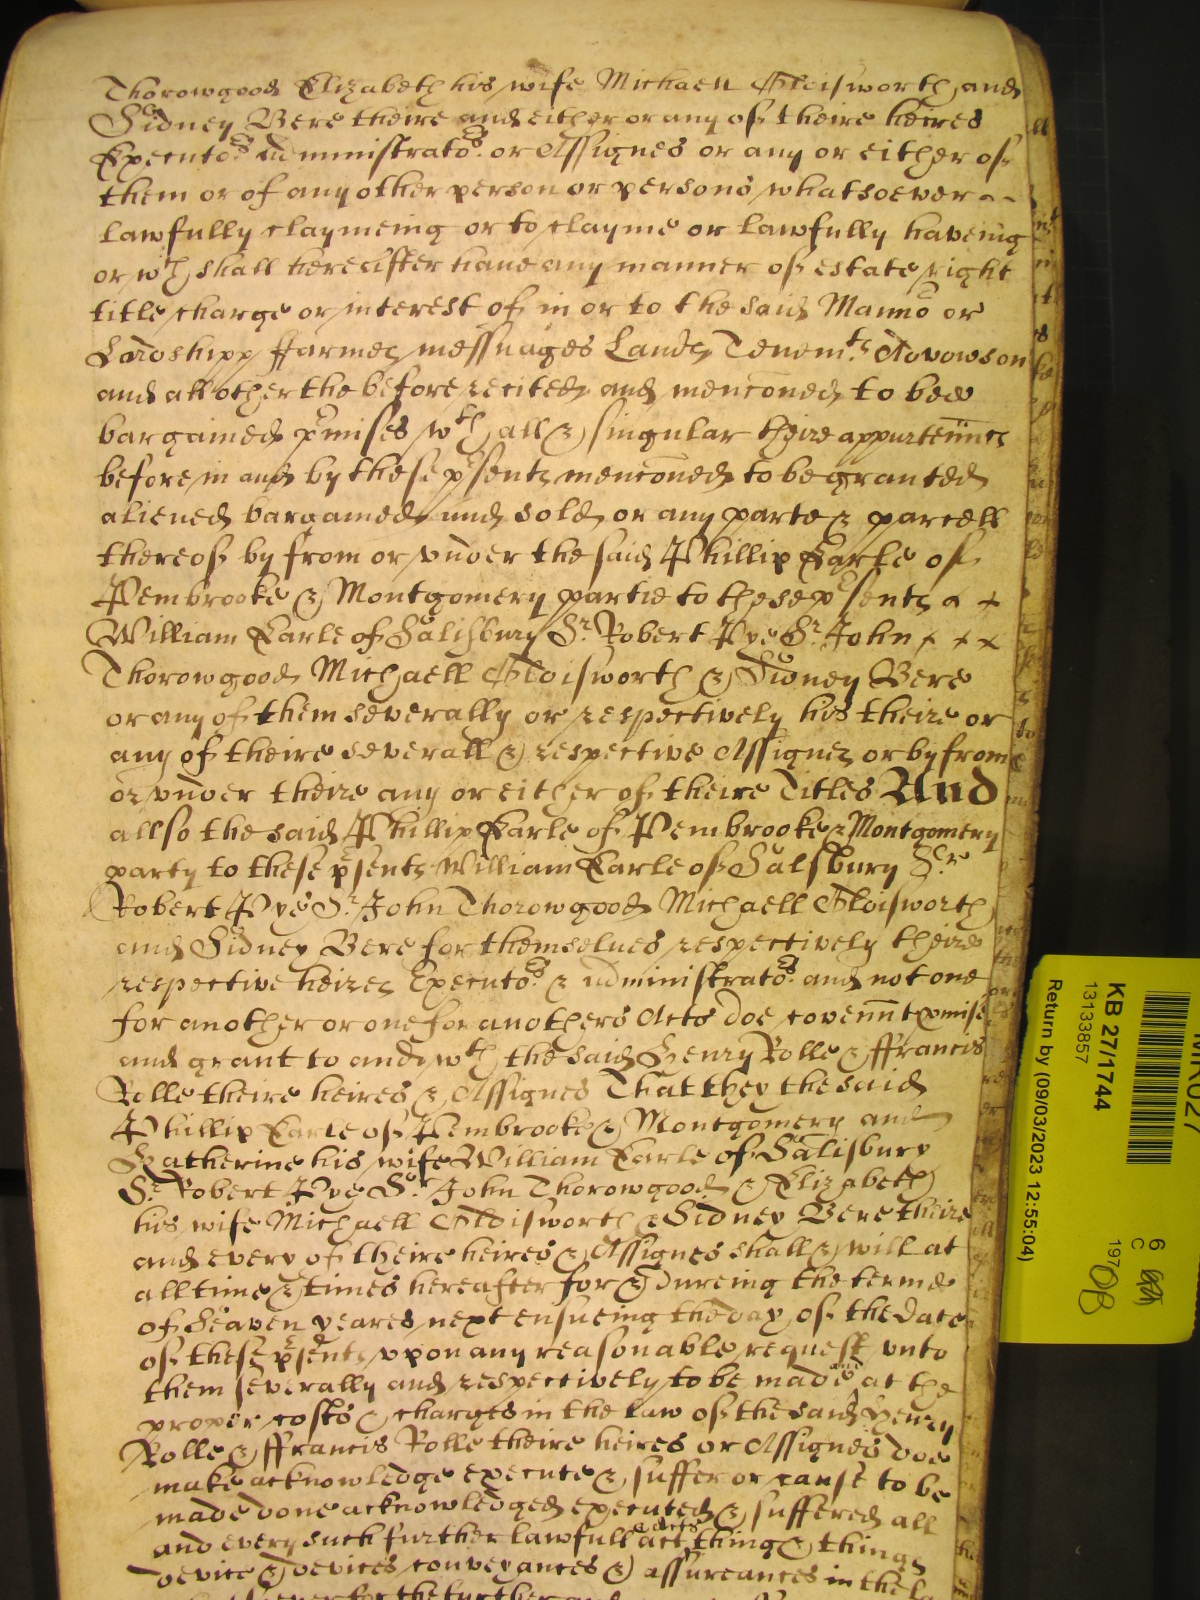 Thorowgood Elizabeth his wife Michaell Oldisworth and
Sidney Bere theire and either or any of theire heires
Executors Administrators or Assignes or any or either of
them or of any other person or persons whatsoever
lawfully claymeing or to clayme or lawfully haveing
or wch shall hereafter have any manner of estate right
title charge or interest of in or to the said Manno or
Lordshipp ffarmes messuages Landes Tenemts Advowson
and all other the before recited and menconed to bee
bargained pmises wth all & singular theire appurtennces
before in and by these psentes menconed to be granted
aliened bargained and sold or any parte & parcell
thereof by from or under the said Phillip Earle of
Pembrooke & Montgomery partie to these psentes
William Earle of Salisbury Sr Robert Pye Sr John
Thorowgood Michaell Oldisworth & Sidney Bere
or any of them severally or respectively his theire or
any of theire severall & respective Assignes or by from
or under theire any or either of theire Titles And
allso the said Phillip Earle of Pembrooke & Montgomery
party to these psentes William Earle of Salsbury Sr
Robert Pye Sr John Thorowgood Michaell Oldisworth
and Sidney Bere for themselves respectively theire
respective heires Executors & administrators and not one
for another or one for anothers Acts doe covennt pmise
and grant to and wth the said Henry Rolle & ffrancis
Rolle theire heires & Assignes That they the said
Phillip Earle of Pembrooke & Montgomery and
Katherine his wife William Earle of Salisbury
Sr Robert Pye Sr John Thorowgood & Elizabeth
his wife Michaell Oldisworth & Sidney Bere theire
and every of theire heires & Assignes shall & will at
all time & times hereafter for & dureing the terme
of Seaven yeares next ensueing the day of the date
of these psents upon any reasonable request unto
them severally and respectively to be made and at the
proper costs & charges in the law of the said Henry
Rolle & ffrancis Rolle theire heires or Assignes doe
make acknowledge execute & suffer or cause to be
made done acknowledged executed & suffered all
and every such further lawfull act & acts thing & things
device & devices conveyances & assureances in the
for the further and
KB 27/1744
13133857
Return by (09/03/2023 12:55:04)
6
C
197